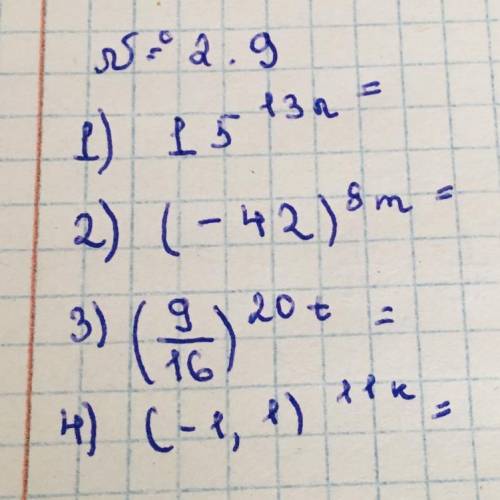 № 2.9
1) 15^13n =
2) (-42)^8m =
3) (9/16)^20t =
4) (-1,1)^11k =